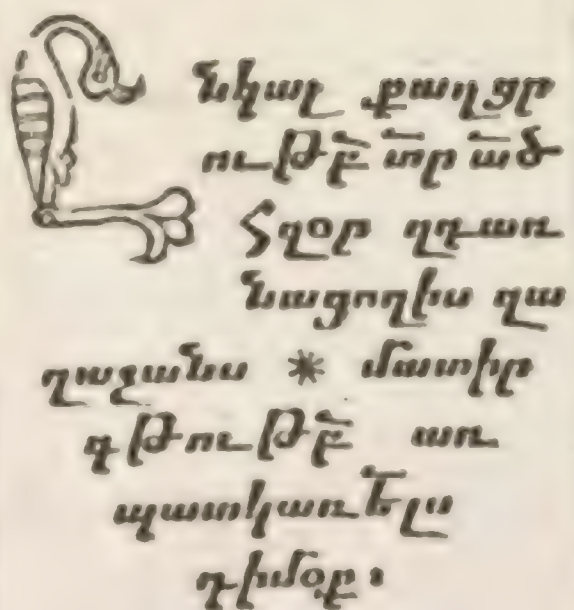 Ընկալ քաղցր
ութբ̅ տ̅ր ա̅ծ
Հզօր զդառ
նացողիս զա
ղաչանս * մատիր
գթութբ̅ առ
պատկառե̅լս
դիմօք։